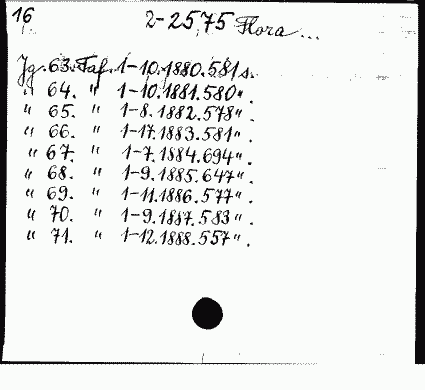 16
2-2575 Flora...
Jg. 63. Taf. 1-10.1880.581 s.
" 64. " 1-10.1881.580".
" 65. " 1-8.1882.578".
" 66. " 1-17.1883.581".
" 67. " 1-7.1884.694".
" 68. " 1-9.1885.647".
" 69. " 1-11.1886.577".
" 70. " 1-9.1887.583".
" 71. " 1-12.1888.557".